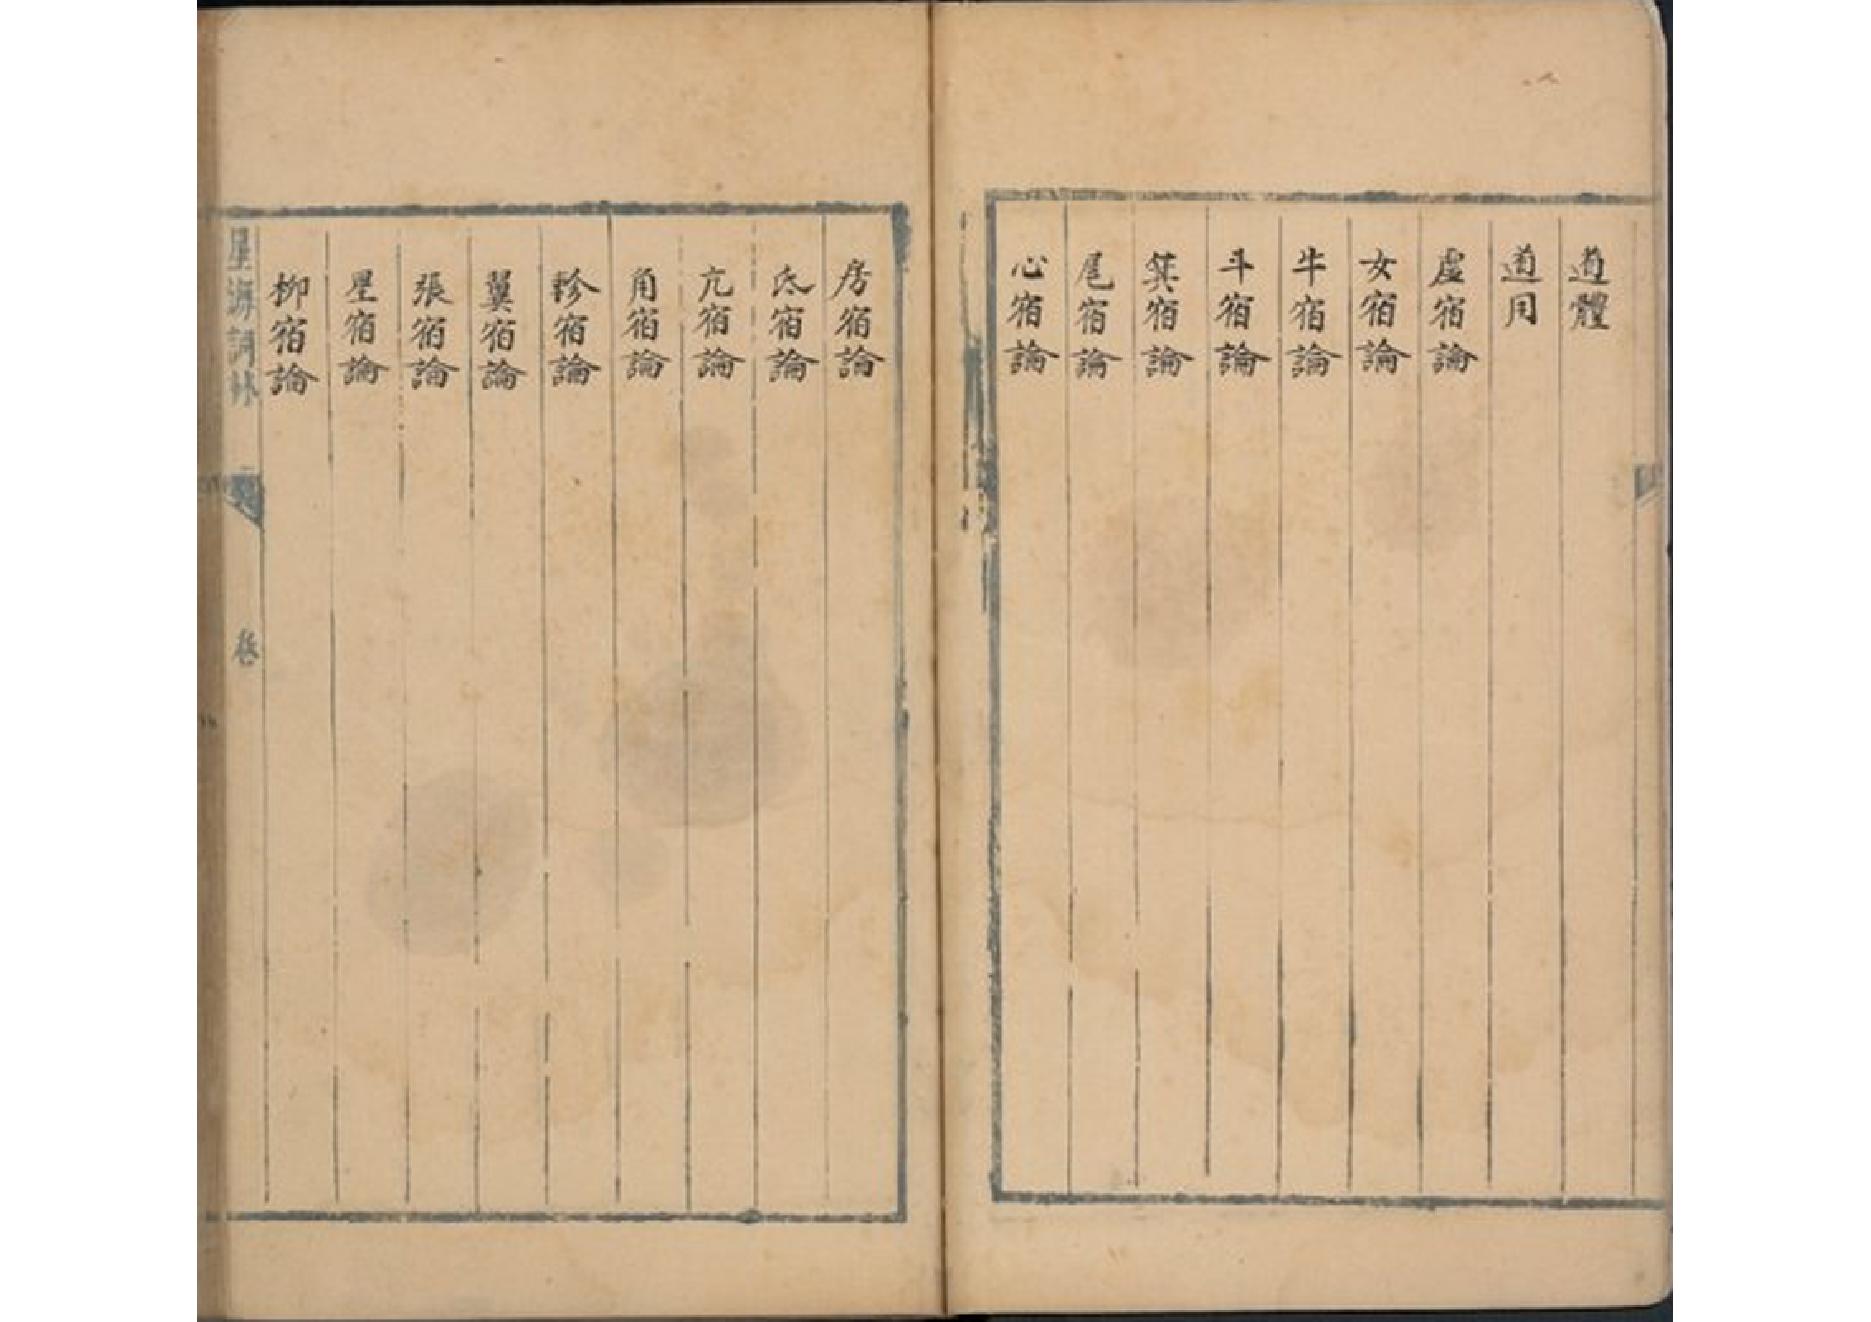 道體
道用
虛宿論
女宿論
牛宿論
斗宿論
箕宿論
尾宿論
心宿論
房宿論
氐宿論
亢宿論
角宿論
軫宿論
翼宿論
張宿論
星宿論
柳宿論
星海詞林
卷